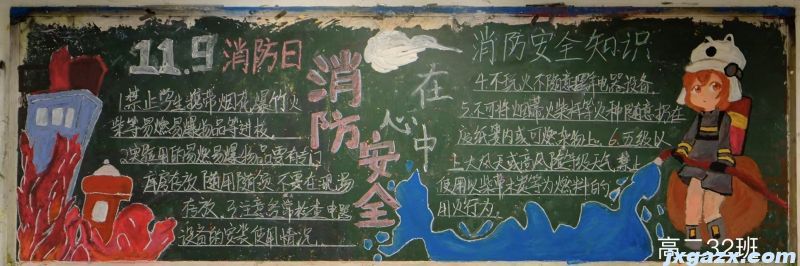 11.9消防日
1.禁止学生携带烟花爆竹火
柴等易燃易爆物品等进校。
2.实验用的易燃易爆物品要有专门
库房存放,随用随领,不要在现场
存放。3.注意经常检查电器
设备的安装使用情况。
消防安全
在心中
消防安全知识
4.不玩火不随意摆弄电器设备.
5.不可将烟蒂火柴等火种随意扔在
废纸篓内或可燃杂物上。6.五级以
上大风天或高风险等级天气,禁止
使用以柴草类等为燃料的
用火行为。
高二32班
jxgazx.com